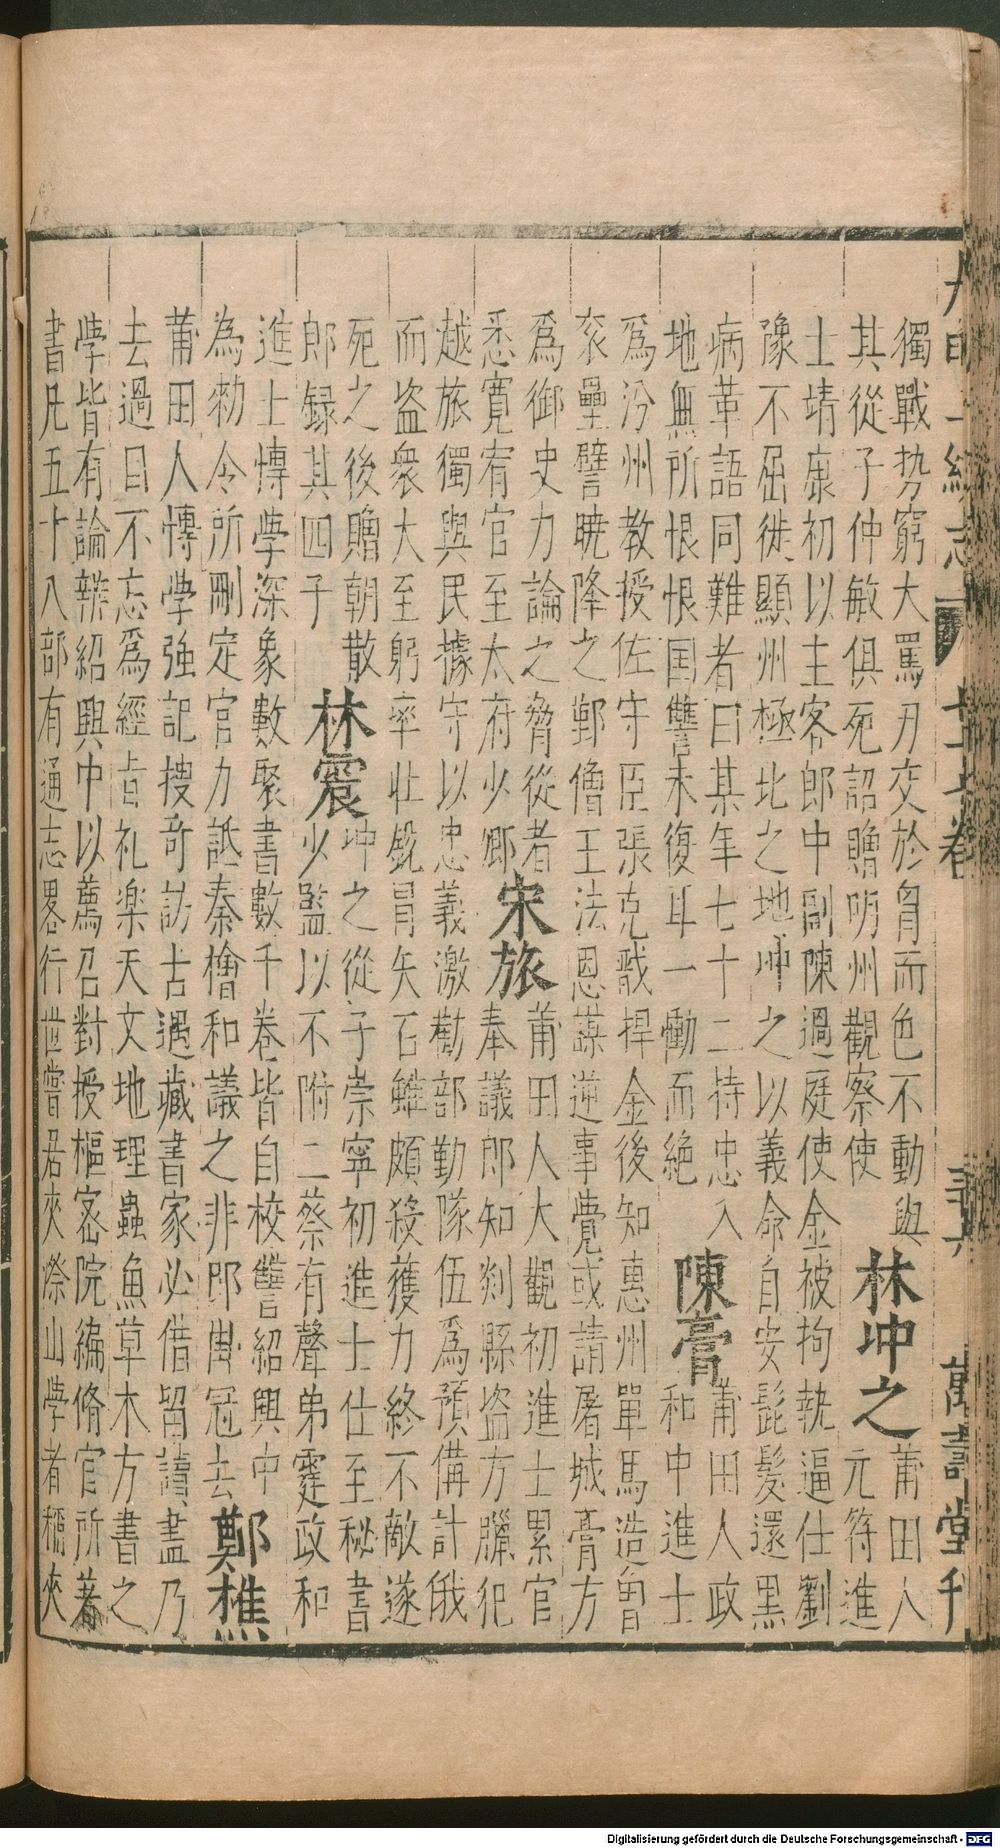 獨戰势窮大罵刃交於胷而色不動與
其從子仲敏俱死詔贈明州觀察使 林冲之 莆田人
元符進
士靖康初以主客郎中副陳過庭使金被拘執逼仕劉
豫不屈徙顯州極北之地冲之以義命自安髭髮還黑
病革語同難者曰某年七十二持忠入
地無所恨恨国讐未復耳一慟而絶 陳膏 莆田人政
和中進士
爲汾州教授佐守臣張克戩捍金後知惠州單馬造曾
衮壘譬暁降之鄞僧王法恩謀逆事覺或請屠城膏方
爲御史力論之脅從者
悉寛宥官至太府少卿 宋旅 莆田人大觀初進士累官
奉議郎知剡縣盗方臘犯
越旅獨與民據守以忠義激勸部勤隊伍爲預備計俄
而盗衆大至躬率壮銳冒矢石雖頗殺獲力終不敵遂
死之後贈朝散
郎録其四子 林震 冲之從子崇寧初進士仕至秘書
少監以不附二蔡有聲弟霆政和
進士慱学深象數聚書數千卷皆自校讐紹興中
為勑令所刪定官力詆秦檜和議之非即掛冠去 鄭樵
莆田人慱学強記搜奇訪古遇藏書家必借留讀盡乃
去過目不忘爲經㫖礼楽天文地理蟲魚草木方書之
学皆有論辨紹興中以薦召對授樞宻院編脩官所著
書凡五十八部有通志畧行世嘗居夾漈山学者稱夾
大明一統志 七十七卷 萬壽堂刊
Digitalisierung gefördert durch die Deutsche Forschungsgemeinschaft - DFG